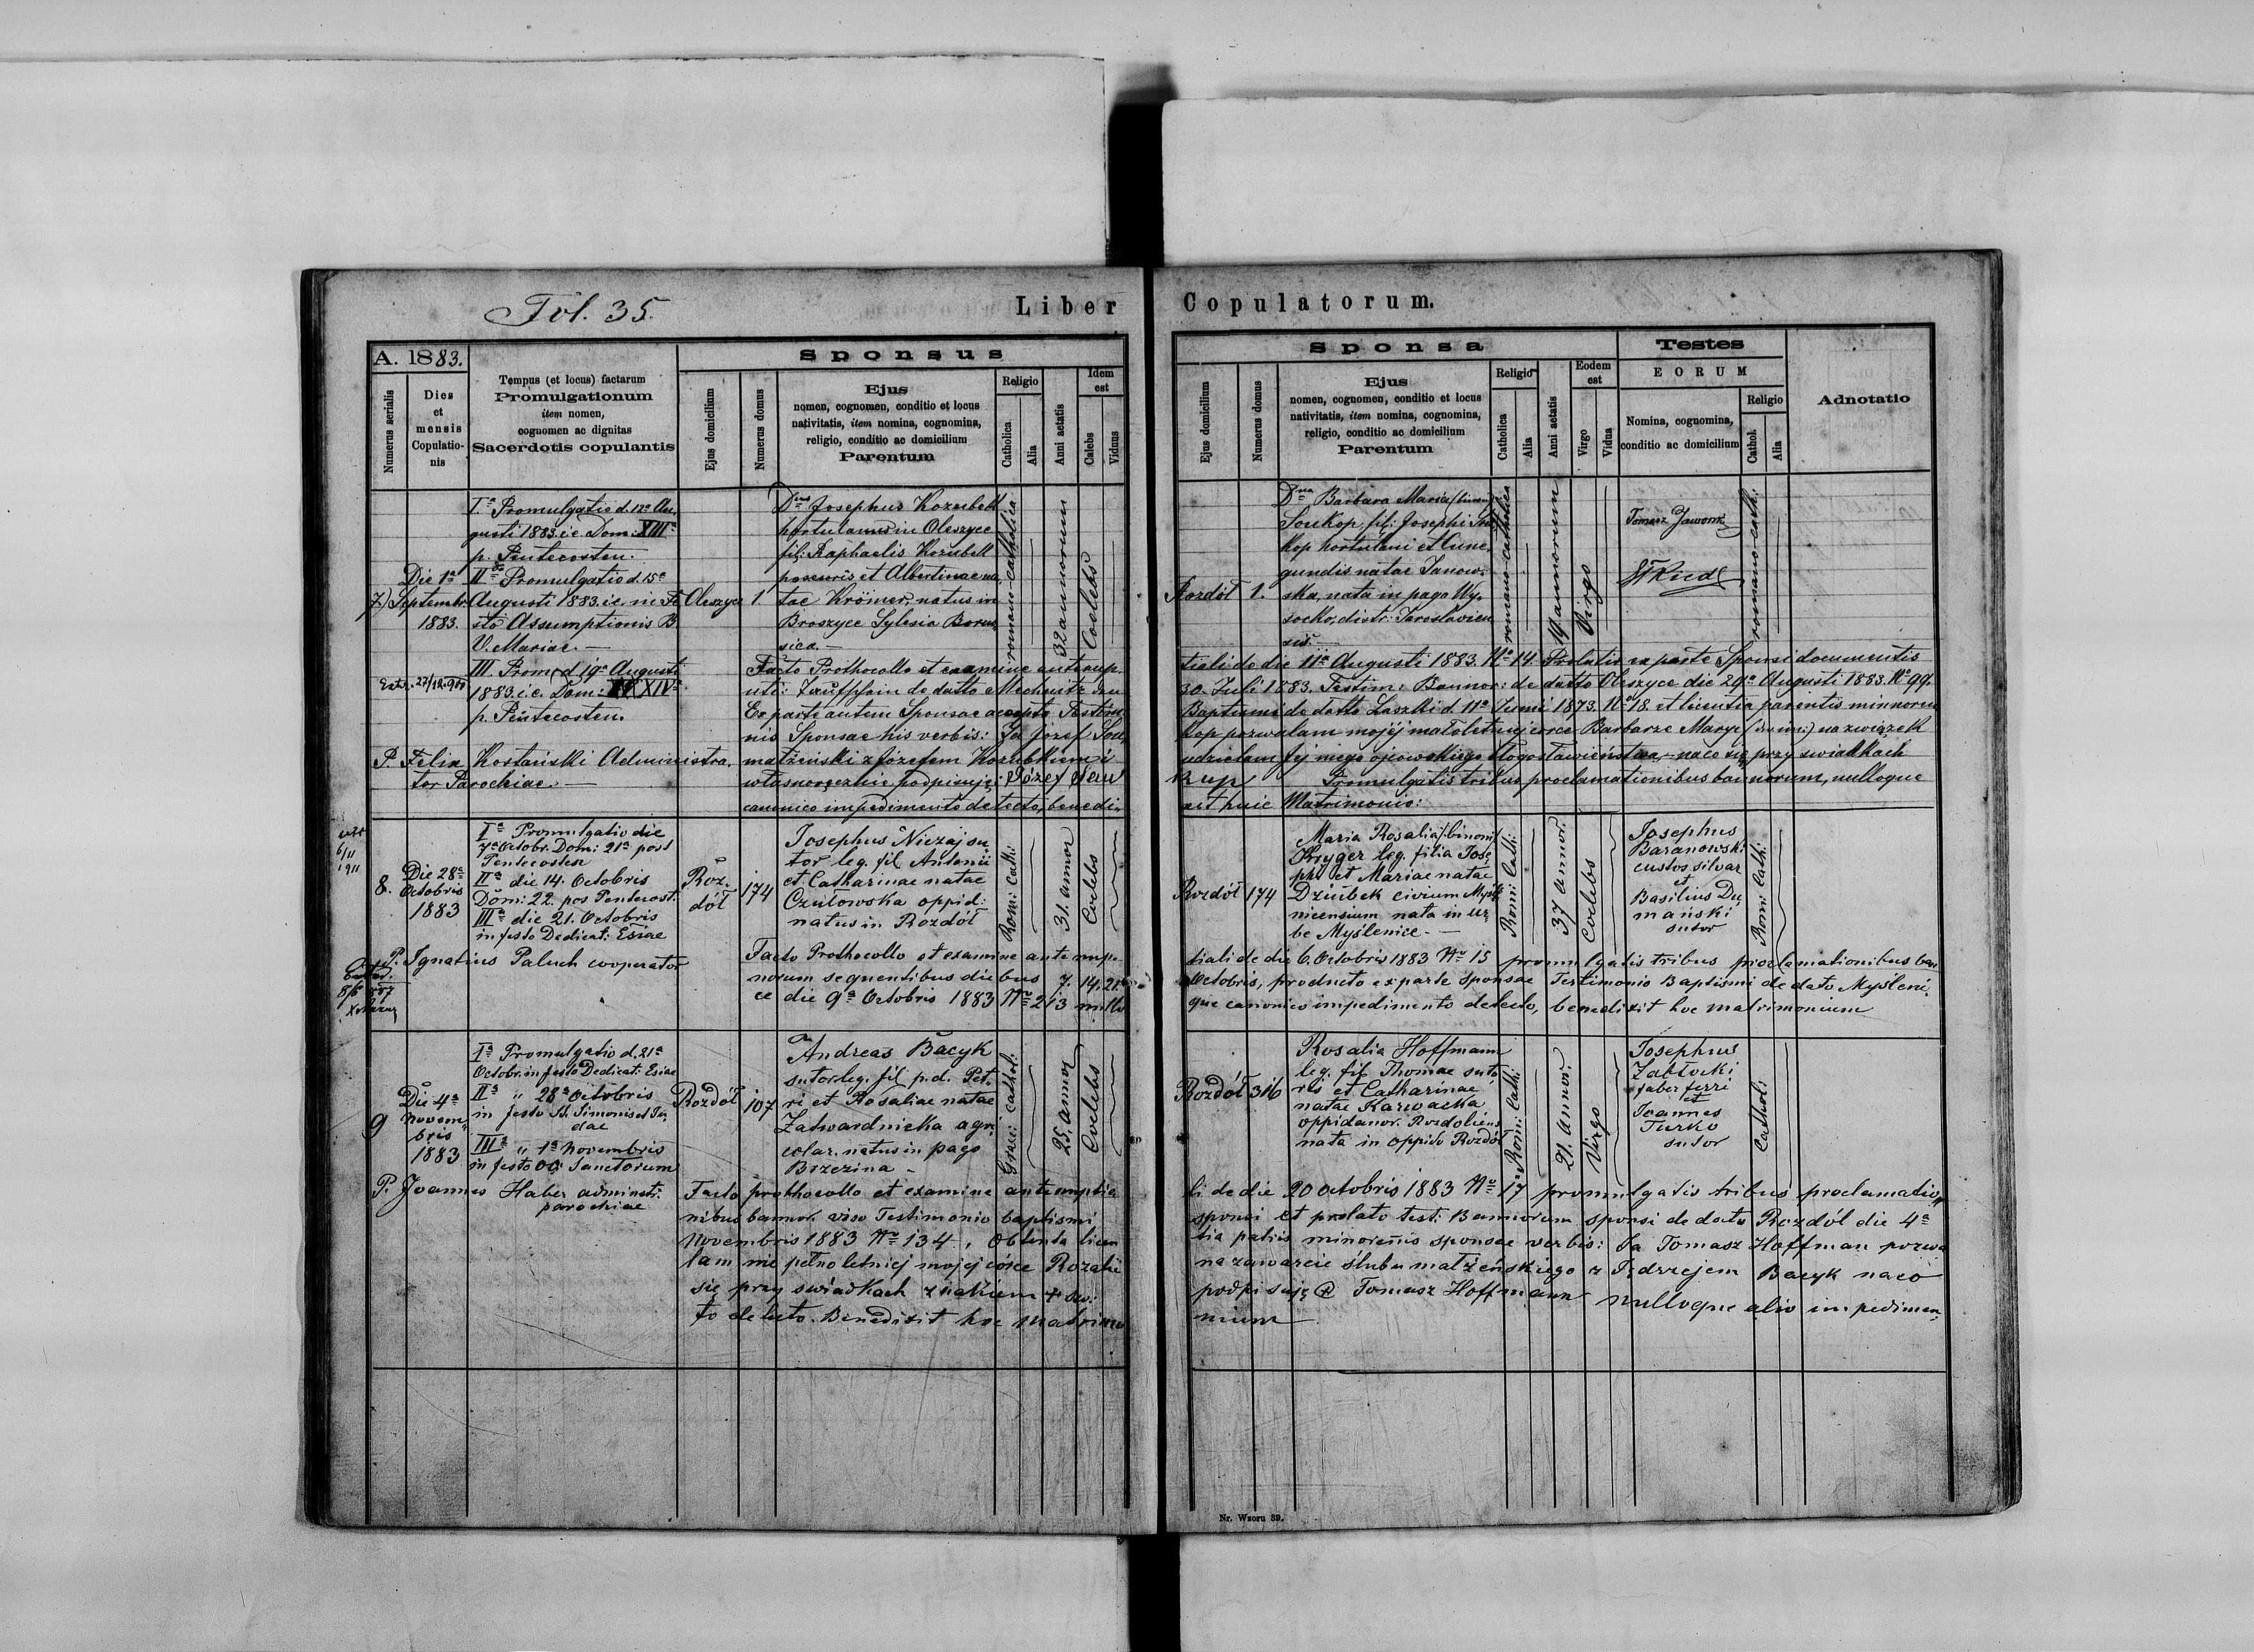 Fol. 35.
Liber Copulatorum.
A. 1883.
Sponsus
Numerus serialis
Dies
et
mensis
Copulatio-
nis
Tempus (et locus) factarum
Promulgationum
item nomen,
cognomen ac dignitas
Sacerdotis copulantis
Ejus domicilium
Numerus domus
Ejus
nomen, cognomen, conditio et locus
nativitatis, item nomina, cognomina,
religio, conditio ac domicilium
Parentum
Religio
Catholica
Alia
Anni aetatis
Idem
est
Calebs
Viduus
Sponsa
Ejus domicilium
Numerus domus
Ejus
nomen, cognomen, conditio et locus
nativitatis, item nomina, cognomina,
religio, conditio ac domicilium
Parentum
Religio
Catholica
Alia
Anni aetatis
Eodem
est
Virgo
Vidua
Testes
EORUM
Nomina, cognomina,
conditio ac domicilium
Religio
Cathol.
Alia
Adnotatio
7.)
Die 1a
Septembr.
1883.
Ia Promulgatio d. 12a Au,
gusti 1883. i.e. Dom: XIIIa
p. Pentecosten.
IIa Promulgatio d. 15a
Augusti 1883. i.e. in Fe
sto Assumptionis B.
V. Mariae. —
III. Prom: d 19a Augusti
1883. i.e. Dom: XIVa
p. Pentecosten.
P. Felix Kostański Administra,
tor Parochiae. —
Oleszyce
1.
Dnus Josephus Kozubek
hortulanus in Oleszyce
fil: Raphaelis Kozubek
et Albertinae na,
tae Krömer, natus in
Broszyce Sylesia Borus,
sica. —
romano-catholica
32 annorum
Coelebs
Rozdół
1.
Dna Barbara Maria (binom)
Soukop, fil: Josephi Sou
kop hortulani et Cune,
gundis natae Janow,
ska, nata in pago Wy,
socko, distr: Jaroslavien
sis. —
romano-catholica
19 annorum
Virgo
Tomasz Jaworski
romano-cath:
Facto Prothocollo et examine antenup
tiali de die 11a Augusti 1883. No 14. Prolatis ex parte Sponsi documentis
uti: Taufschein de datto Mechnitz
30. Juli 1883. Testim: Bannor: de datto Oleszyce die 29a Augusti 1883. No 99.
Ex parte autem Sponsae accepto Testim
Baptismi de datto Laszki d. 11a Junii 1873. No 18. et licentia parentis minoren
nis Sponsae his verbis: Ja Józef Sou,
kop pozwalam mojéj małoletniej córce Barbarze Maryi (dwuim:) na związek
małżeński z Józefem Kozubkiem i
udzielam Jej mego ojcowskiego błogosławieństwa, — na co się przy świadkach
własnoręcznie podpisuję: Józef Sou
kup Promulgatis tribus proclamationibus bannorum, nulloque
canonico impedimento detecto, benedi,
xit huic Matrimonio:
8.
Die 28a
Octobris
1883
Ia Promulgatio die
7a Octobr. Dom: 21a post
Pentecosten
IIa die 14. Octobris
Dom: 22. pos Pentecost.
IIIa die 21. Octobris
in festo Dedicat: Esiae
P. Ignatius Paluch cooperator
Roz,
dół
174
Josephus Niczaj su
tor leg. fil Antonii
et Catharinae natae
Czułowska oppid:
natus in Rozdół
Rom: Cath:
31. annor
Coelebs
Rozdół
174
Maria Rosalia /:binom:/
Kryger leg. filia Jose
phi et Mariae natae
Dziubek civium Myśle
nicensium nata in ur,
be Myślenice. —
Rom: Cath:
37 annor.
Coelebs
Josephus
Baranowski
custos silvar
et
Basilius Du
mański
sutor
Rom: Cath:
Facto Prothocollo et examine ante nup,
tiali de die 6. Octobris 1883 No 15 promulgatis tribus proclamationibus ban
norum sequentibus diebus 7. 14. 21
Octobris, producto ex parte sponsae Testimonio Baptismi de dato Myśleni,
ce die 9a Octobris 1883 No 213 nullo
que canonico impedimento detecto, benedixit hoc matrimonium
9
Die 4a
Novem,
bris
1883
Ia Promulgatio d. 21a
Octobr. in festo Dedicat: Esiae
IIa " 28a Octobris
in festo St. Simonis et Ju,
dae
IIIa " 1a Novembris
in festo OO: Sanctorum
P. Joannes Haber administr:
parochiae
Rozdół
107
Andreas Bacyk
sutor leg. fil p.d. Pet,
ri et Rosaliae natae
Zatwardnicka agri
colar. natus in pago
Brzezina —
Graec: Cathol:
25. annor
Coelebs
Rozdół
316
Rosalia Hoffmann
leg. fil Thomae suto
ris et Catharinae
natae Karwacka
oppidanor. Rozdoliens
nata in oppido Rozdół
Rom: Cath:
21. annor.
Virgo
Josephus
Zabłocki
faber ferri
et
Joannes
Turko
sutor
Cathol:
Facto prothocollo et examine antenuptia
li de die 20 octobris 1883 No 17 promulgatis tribus proclamatio,
nibus bannor. viso Testimonio baptismi
sponsi et prolato test: Bannorum sponsi de dato Rozdół die 4a
Novembris 1883 No 134, obtenta licen
tia patris minorenis sponsae verbis: Ja Tomasz Hoffman pozwa
lam nie pełnoletniej mojej córce Rozalii
na zawarcie ślubu małżeńskiego z Jędrzejem Bacyk na co
się przy świadkach znakiem + św:
podpisuję + Tomasz Hoffmann nulloque alio impedimen,
to detecto. Benedixit hoc matrimo
nium
Nr. Wzoru 39.